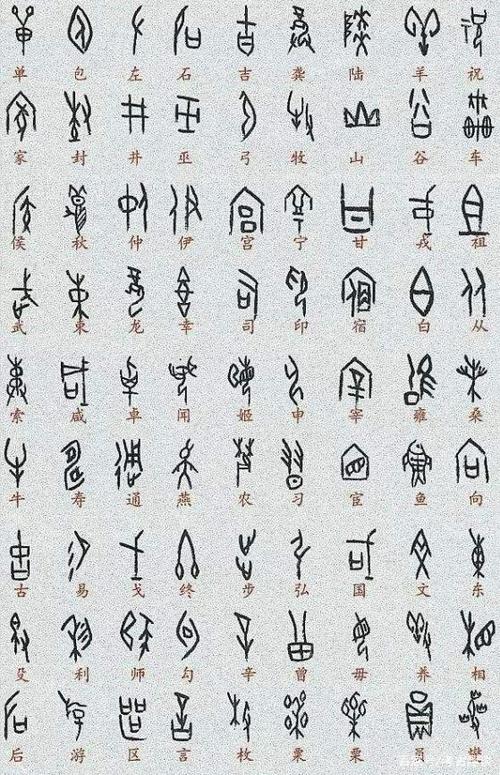 单 包 左 石 吉 龚 陆 羊 祝
家 封 井 巫 弓 牧 山 谷 车
侯 秋 仲 伊 宫 宁 甘 戎 祖
武 束 龙 幸 司 印 宿 白 从
索 咸 卓 闻 姬 申 宰 雍 桑
牛 寿 通 燕 农 习 宦 鱼 向
古 易 戈 终 步 弘 国 文 东
殳 利 师 勾 辛 曾 毋 养 相
后 游 区 言 枚 栗 粟 员